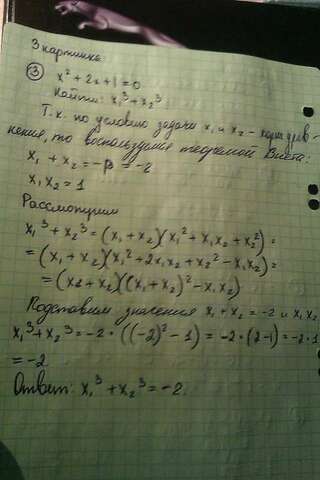 3 картинка
③ x² + 2x + 1 = 0
Найти: x₁³ + x₂³
Т.к. по условию задачи x₁ и x₂ – корни урав-
нения, то воспользуемся теоремой Виета:
x₁ + x₂ = -p = -2
x₁x₂ = 1
Рассмотрим
x₁³ + x₂³ = (x₁ + x₂)(x₁² + x₁x₂ + x₂²) =
= (x₁ + x₂)(x₁² + 2x₁x₂ + x₂² - x₁x₂) =
= (x₁ + x₂)((x₁ + x₂)² - x₁x₂)
Подставим значения x₁ + x₂ = -2 и x₁x₂
x₁³ + x₂³ = -2 · ((-2)² - 1) = -2 · (2-1) = -2 · 1
= -2
Ответ: x₁³ + x₂³ = -2.